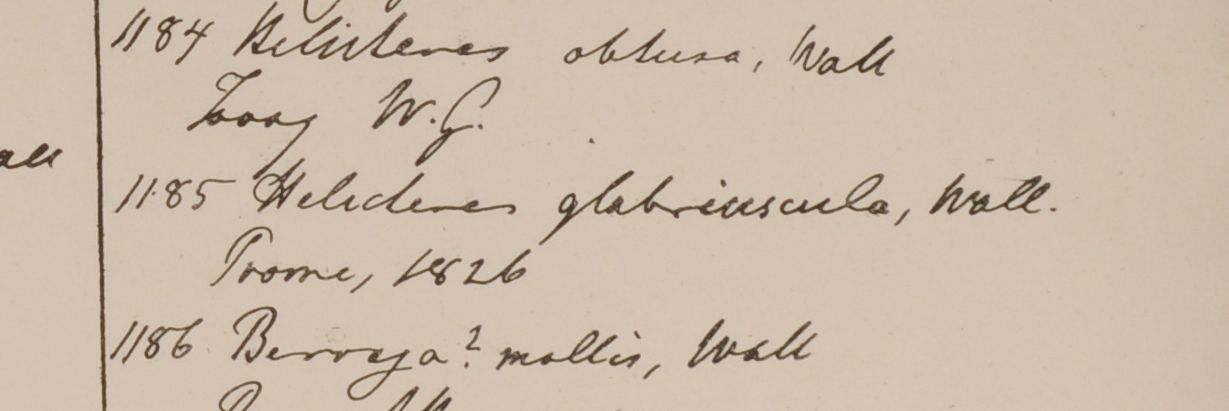 1184 Helicteres obtusa, Wall
Tavoy W.G.
all
1185 Helicteres glabriuscula, Wall.
Prome, 1826
1186 Berrya? mollis, Wall